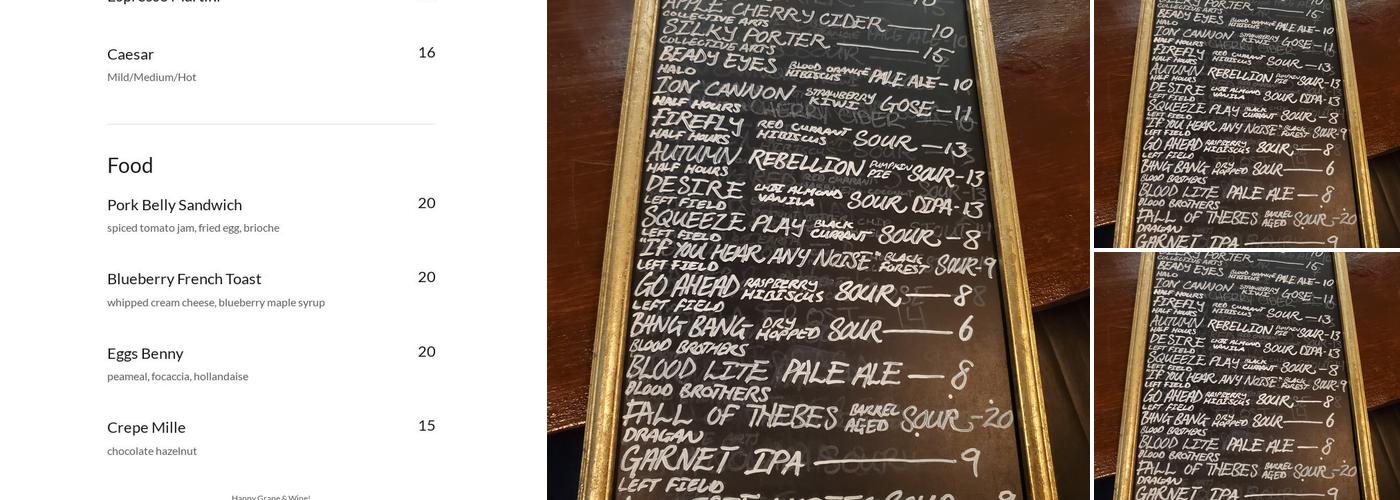 Espresso Martini
Caesar 16
Mild/Medium/Hot
Food
Pork Belly Sandwich 20
spiced tomato jam, fried egg, brioche
Blueberry French Toast 20
whipped cream cheese, blueberry maple syrup
Eggs Benny 20
peameal, focaccia, hollandaise
Crepe Mille 15
chocolate hazelnut
Happy Grape & Wine!
APPLE CHERRY CIDER — 10
COLLECTIVE ARTS
SILKY PORTER — 15
COLLECTIVE ARTS
BEADY EYES BLOOD ORANGE HIBISCUS PALE ALE - 10
HALO
ION CANNON STRAWBERRY KIWI GOSE - 11
HALF HOURS
FIREFLY RED CURRANT HIBISCUS SOUR - 13
HALF HOURS
AUTUMN REBELLION PUMPKIN PIE SOUR - 13
HALF HOURS
DESIRE CHAI ALMOND VANILA SOUR DIPA - 13
LEFT FIELD
SQUEEZE PLAY BLACK CURRANT SOUR - 8
LEFT FIELD
"IF YOU HEAR ANY NOISE" BLACK FOREST SOUR - 9
LEFT FIELD
GO AHEAD RASPBERRY HIBISCUS SOUR — 8
LEFT FIELD
BANG BANG DRY HOPPED SOUR — 6
BLOOD BROTHERS
BLOOD LITE PALE ALE — 8
BLOOD BROTHERS
FALL OF THEBES BARREL AGED SOUR - 20
DRAGAN
GARNET IPA — 9
LEFT FIELD
SILKY PORTER — 15
COLLECTIVE ARTS
BEADY EYES BLOOD ORANGE HIBISCUS PALE ALE - 10
HALO
ION CANNON STRAWBERRY KIWI GOSE - 11
HALF HOURS
FIREFLY RED CURRANT HIBISCUS SOUR - 13
HALF HOURS
AUTUMN REBELLION PUMPKIN PIE SOUR - 13
HALF HOURS
DESIRE CHAI ALMOND VANILA SOUR DIPA - 13
LEFT FIELD
SQUEEZE PLAY BLACK CURRANT SOUR - 8
LEFT FIELD
"IF YOU HEAR ANY NOISE" BLACK FOREST SOUR - 9
LEFT FIELD
GO AHEAD RASPBERRY HIBISCUS SOUR — 8
LEFT FIELD
BANG BANG DRY HOPPED SOUR — 6
BLOOD BROTHERS
BLOOD LITE PALE ALE — 8
BLOOD BROTHERS
FALL OF THEBES BARREL AGED SOUR - 20
DRAGAN
GARNET IPA — 9
SILKY PORTER — 15
COLLECTIVE ARTS
BEADY EYES BLOOD ORANGE HIBISCUS PALE ALE - 10
HALO
ION CANNON STRAWBERRY KIWI GOSE - 11
HALF HOURS
FIREFLY RED CURRANT HIBISCUS SOUR - 13
HALF HOURS
AUTUMN REBELLION PUMPKIN PIE SOUR - 13
HALF HOURS
DESIRE CHAI ALMOND VANILA SOUR DIPA - 13
LEFT FIELD
SQUEEZE PLAY BLACK CURRANT SOUR - 8
LEFT FIELD
"IF YOU HEAR ANY NOISE" BLACK FOREST SOUR - 9
LEFT FIELD
GO AHEAD RASPBERRY HIBISCUS SOUR — 8
LEFT FIELD
BANG BANG DRY HOPPED SOUR — 6
BLOOD BROTHERS
BLOOD LITE PALE ALE — 8
BLOOD BROTHERS
FALL OF THEBES BARREL AGED SOUR - 20
DRAGAN
GARNET IPA — 9